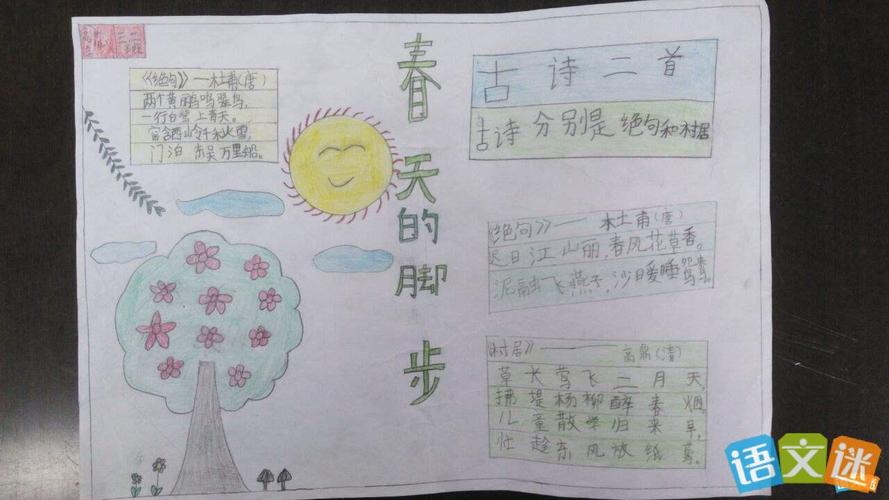 三二
《绝句》—杜甫(唐)
两个黄鹂鸣翠鸟,
一行白鹭上青天。
窗含西岭千秋雪,
门泊东吴万里船。
春天的脚步
古诗二首
古诗分别是绝句和村居
《绝句》——杜甫(唐)
迟日江山丽,春风花草香。
泥融飞燕子,沙暖睡鸳鸯。
《村居》——高鼎(清)
草长莺飞二月天,
拂堤杨柳醉春烟。
儿童散学归来早,
忙趁东风放纸鸢。
语文迷